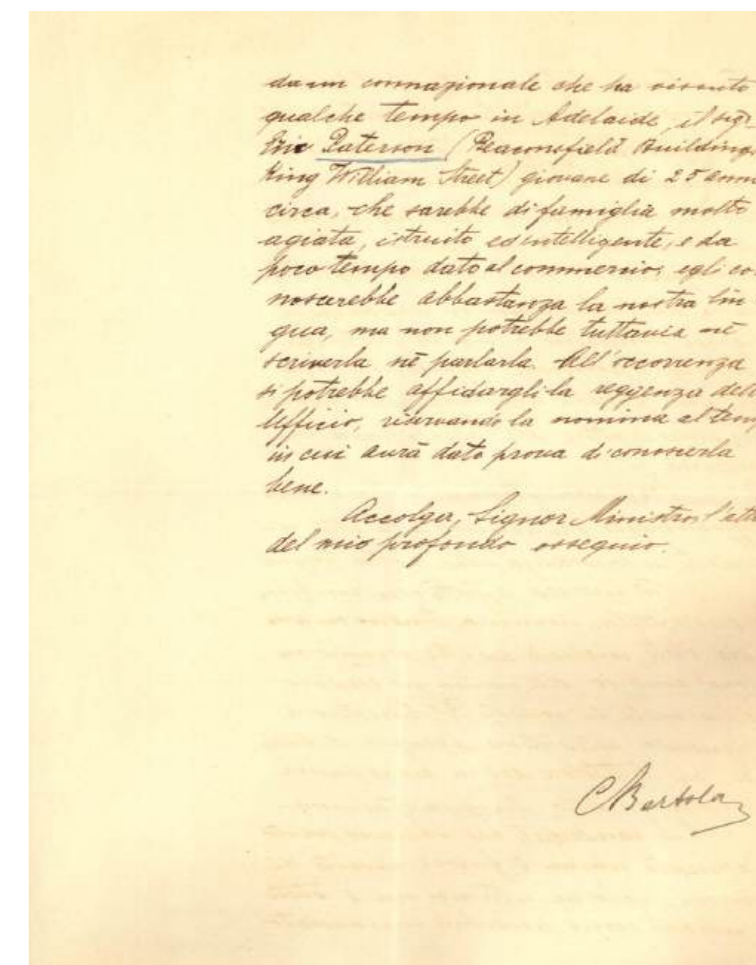 da un connazionale che ha vissuto
qualche tempo in Adelaide, il sigr
Eric Paterson (Beaconsfield Buildings
King William Street) giovane di 25 anni
circa, che sarebbe di famiglia molto
agiata, istruito ed intelligente, e da
poco tempo dato al commercio; egli co-
noscerebbe abbastanza la nostra lin
gua, ma non potrebbe tuttavia nè
scriverla nè parlarla. All'occorrenza
si potrebbe affidargli la reggenza dell
Ufficio, riservando la nomina al temp
in cui avrà dato prova di conoscerla
bene.
Accolga, Signor Ministro, l'atto
del mio profondo ossequio.
C Bertola